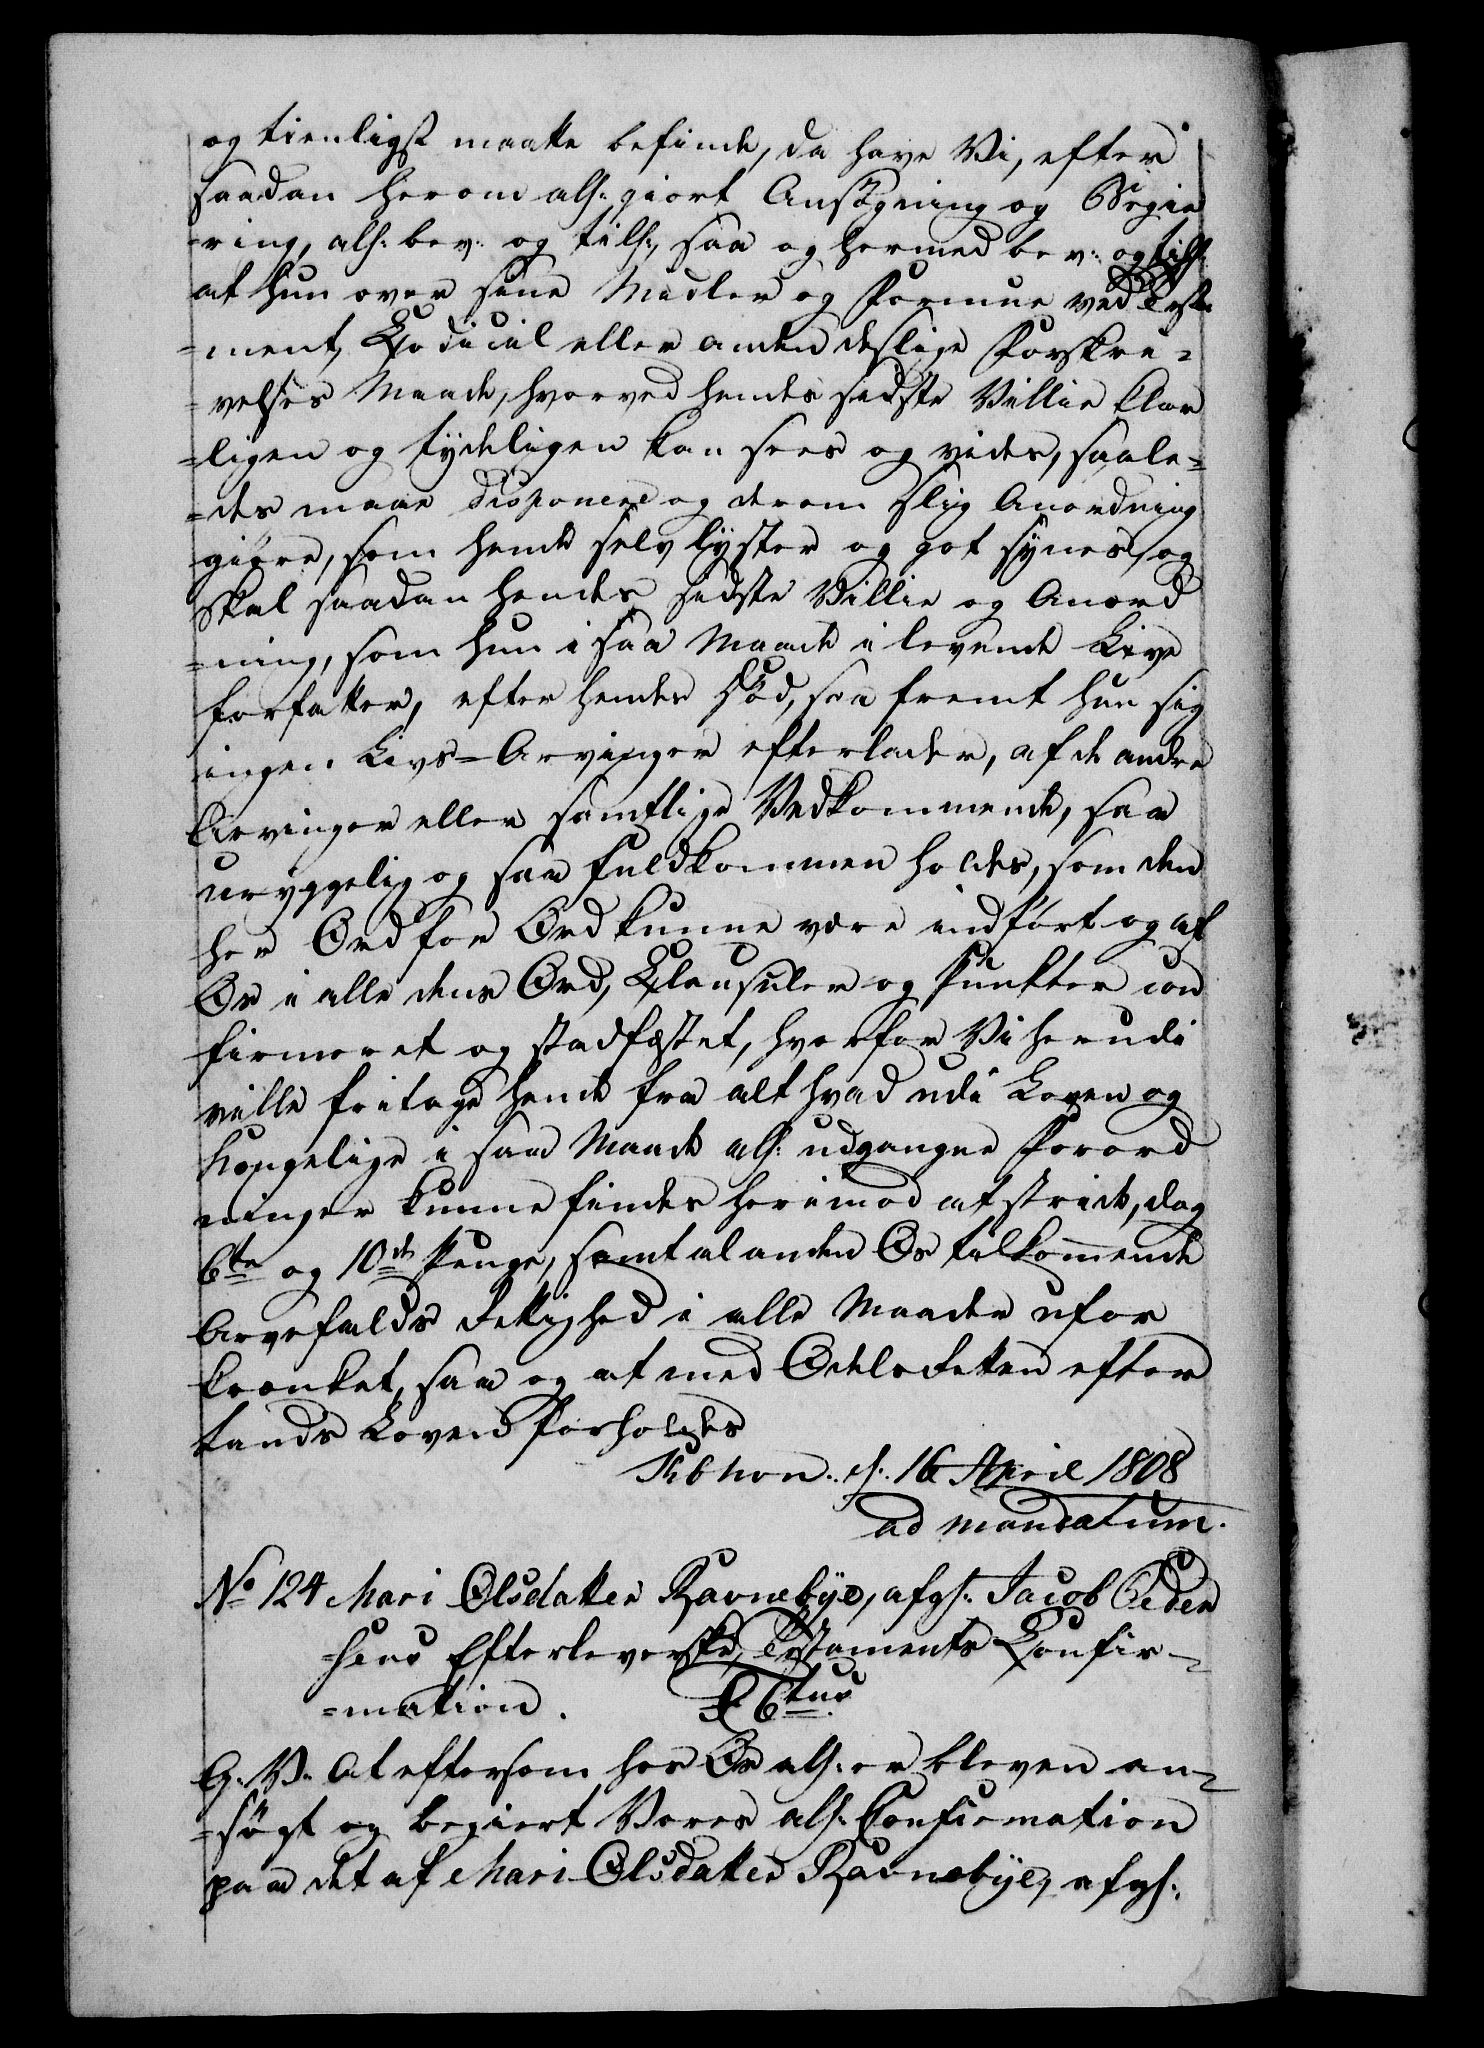 og tienligst maatte befinde, da have Vi, efter
saadan herom als: giort Ansøgning og Begie
=ring, als: bev: og tils:, saa og hermed bev: og tils:
at hun over sine Midler og Formue ved Testa
=ment, Codicil eller anden deslige Forskre=
=velses Maade, hvorved hendes sidste Villie klar
=ligen og tydeligen kan sees og vides, saale=
=des maae disponere og derom slig Anordning
giøre, som hende selv lyster og got synes, og
skal saadan hendes sidste Villie og Anord
=ning, som hun i saa Maade i levende Live
forfatter, efter hendes Død, saa fremt hun sig
ingen Livs=Arvinger efterlader, af de andre
Arvinger eller samtlige Vedkommende, saa
uryggelig og saa fuldkommen holdes, som den
her Ord for Ord kunne være indført og af
Os i alle dens Ord, Clausuler og Punkter con
firmeret og stadfæstet, hvorfor Vi herudi
ville fritage hende fra alt hvad udi Loven og
Kongelige i saa Maade als: udgangne Forord
ninger kunne findes herimod at stride, dog
6te og 10de Penge, samt al anden Os tilkommende
Arvefalds Rettighed i alle Maader ufor
krænket, saa og at med Odels Retten efter
Lands Loven forholdes
Kbhvn. d. 16 April 1808
ad mandatum.
No 124 Mari Olsdatter Ravnebye, afgs: Jacob Peder
=sens Efterleverske, Testaments Confir=
=mation. 6tus
G. V. At eftersom hos Os als: er bleven an=
=søgt og begiert Vores als: Confirmation
paa det af Mari Olsdatter Ravnebye, afgs: